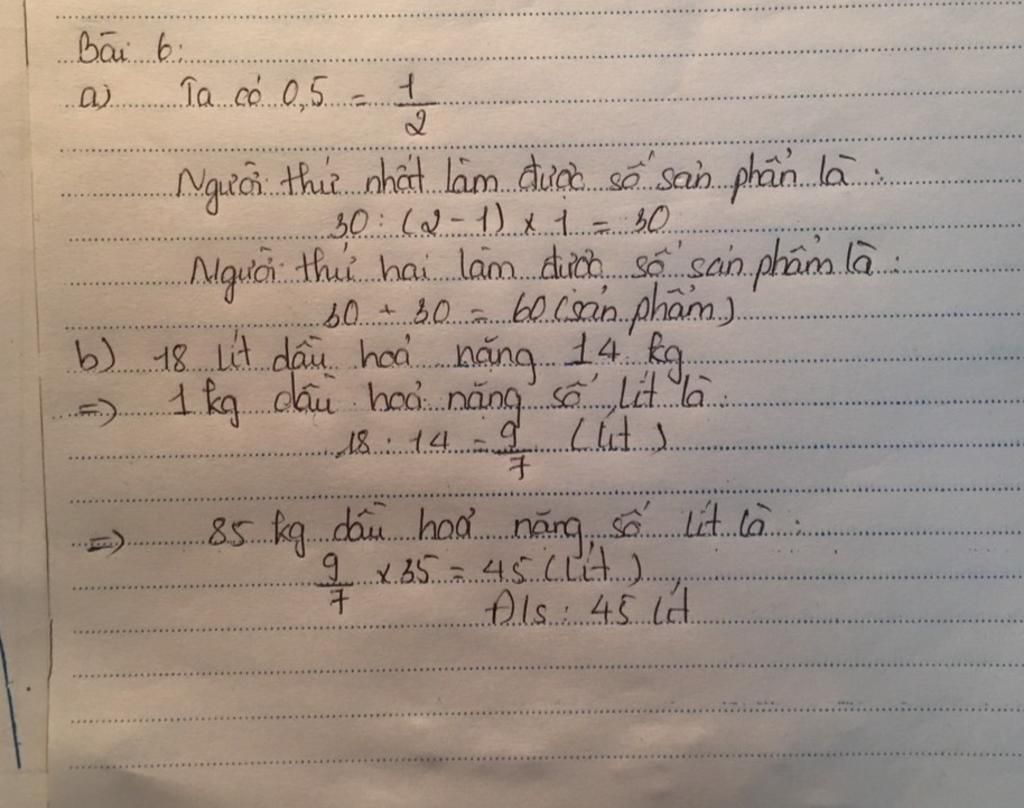 Bài 6:
a) Ta có 0,5 = 1/2
Người thứ nhất làm được số sản phẩn là :
30 : (2 - 1) x 1 = 30
Người thứ hai làm được số sản phẩm là :
30 + 30 = 60 (sản phẩm)
b) 18 lít dầu hoả nặng 14 kg
=> 1 kg dầu hoả nặng số lít là :
18 : 14 = 9/7 (lít)
=> 85 kg dầu hoả nặng số lít là :
9/7 x 35 = 45 (lít)
Đ/s : 45 lít